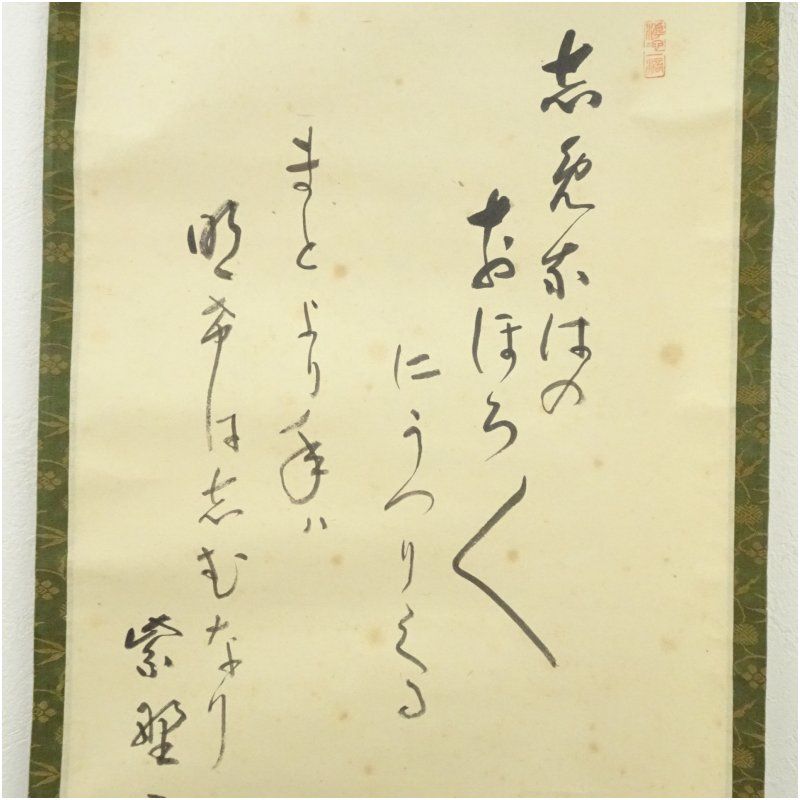 志免縄はの
おほろ〱
にうつりくる
まとより年ハ
明希は志むなり
紫野